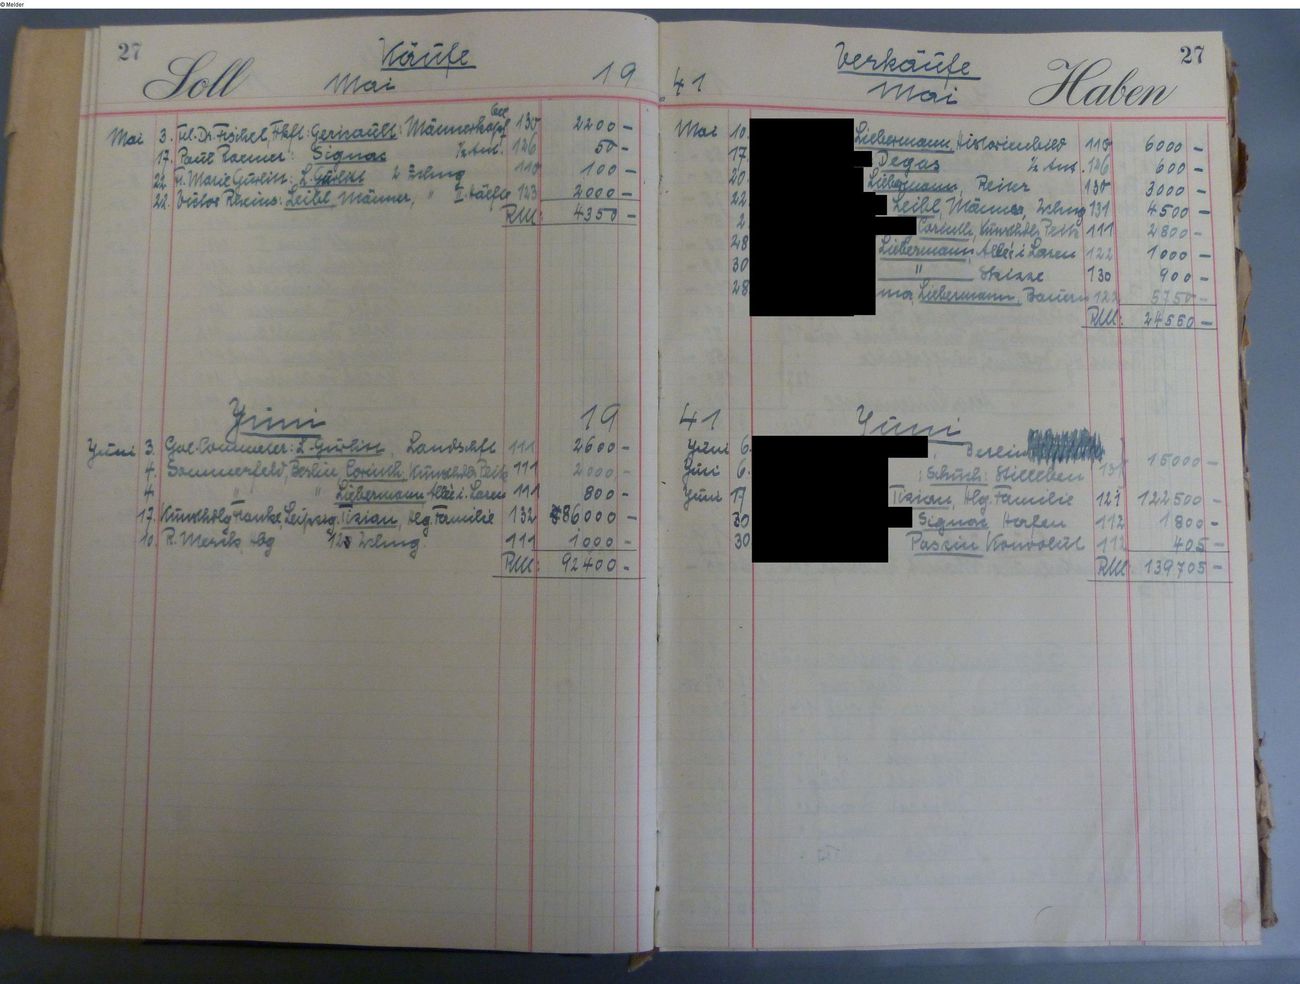 © Melder
27
Soll
Käufe
Mai
19
Mai 3. Frl. Dr. Fischel, Fkft: Gericault: Männerkopf 130 2200 -
17. Paul Roemer: Signac ½ Ant. 126 50 -
22. Fr. Marie Gurlitt: L. Gurlitt 2 110 100 -
22. Victor Rheins: Leibl, Männer, " II. Hälfte 123 2000 -
RM: 4350 -
Juni 19
Juni 3. Gal. Commeter: L. Gurlitt, Landschft 111 2600 -
4. Sommerfeld, Berlin Corinth, 111 2000 -
4 " " Liebermann Allée i. Laren 111 800 -
17. Kunsthdlg Franke Leipzig. Tizian, Hlg. Familie 132 86000 -
10. R. Hbg 111 1000 -
RM: 92400 -
41
Verkäufe
Mai
Haben
27
Mai 10. Liebermann, Historienbild 110 6000 -
17. Degas ½ Ant. 126 600 -
20 Liebermann, Reiter 130 3000 -
22 Leibl, Männer, 131 4500 -
2. Corinth, 111 2800 -
28 Liebermann, Allée i Laren 122 1000 -
30 " Skizze 130 900 -
28 Liebermann, Bauern 122 5750 -
RM: 24550 -
41 Juni
Juni 6.
Juni 6. Schuch: Stilleben 131 15000 -
Juni 17 Tizian, Hlg. Familie 121 122500 -
30 Signac Hafen 112 1800 -
30 Pascin Konvolut 112 405 -
RM: 139705 -